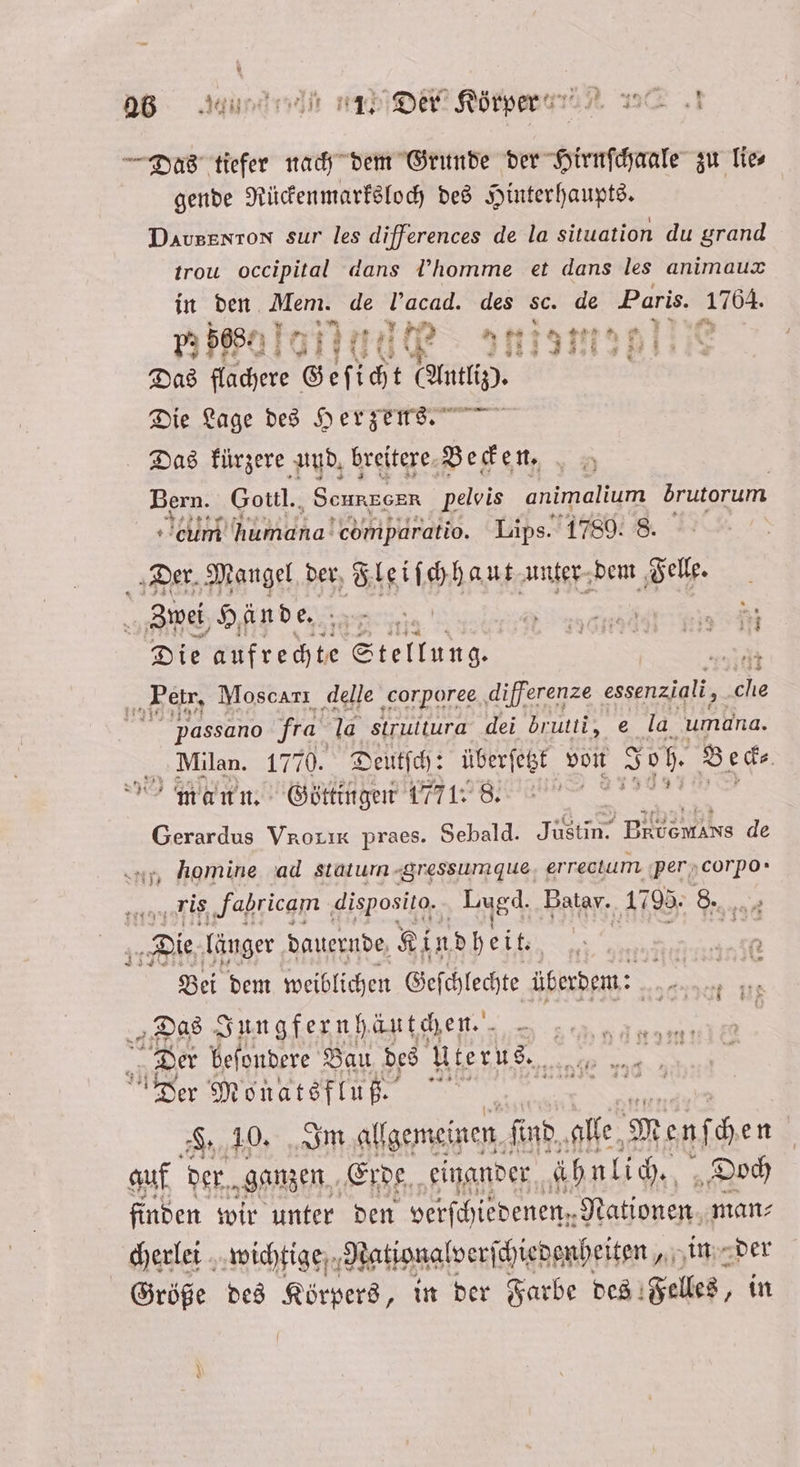 26 1. Der Körper
Das tiefer nach dem Grunde der Hirnſchaale zu lie⸗
gende Rückenmarksloch des Hinterhaupts.
Daubenton sur les differences de la situation du grand
trou occipital dans l'homme et dans les animaux
in den Mem. de l'acad. des sc. de Paris. 1764.
p. 568.
Das flachere Geſicht (Antliz).
Die Lage des Herzens.
Das kürzere und breitere Becken.
Bern. Gottl. Schreger pelvis animalium brutorum
cum humana comparatio. Lips. 1789. 8.
Der Mangel der Fleiſchhaut unter dem Felle.
Zwei Hände.
Die aufrechte Stellung.
Petr. Moscati delle corporee differenze essenziali, che
passano fra la struttura dei brutti, e la umana.
Milan. 1770. Deutſch: überſetzt von Joh. Beck⸗
mann. Göttingen 1771. 8.
Gerardus Vrolik praes. Sebald. Justin. Brugmans de
homine ad statum gressumque errectum per corpo-
ris fabricam disposito. Lugd. Batav. 1795. 8.
Die länger dauernde Kindheit.
Bei dem weiblichen Geſchlechte überdem:
Das Jungfernhäutchen.
Der beſondere Bau des Uterus.
Der Monatsfluß.
§. 10. Im allgemeinen ſind alle Menſchen
auf der ganzen Erde einander ähnlich. Doch
finden wir unter den verſchiedenen Nationen man⸗
cherlei wichtige Nationalverſchiedenheiten, in der
Größe des Körpers, in der Farbe des Felles, in